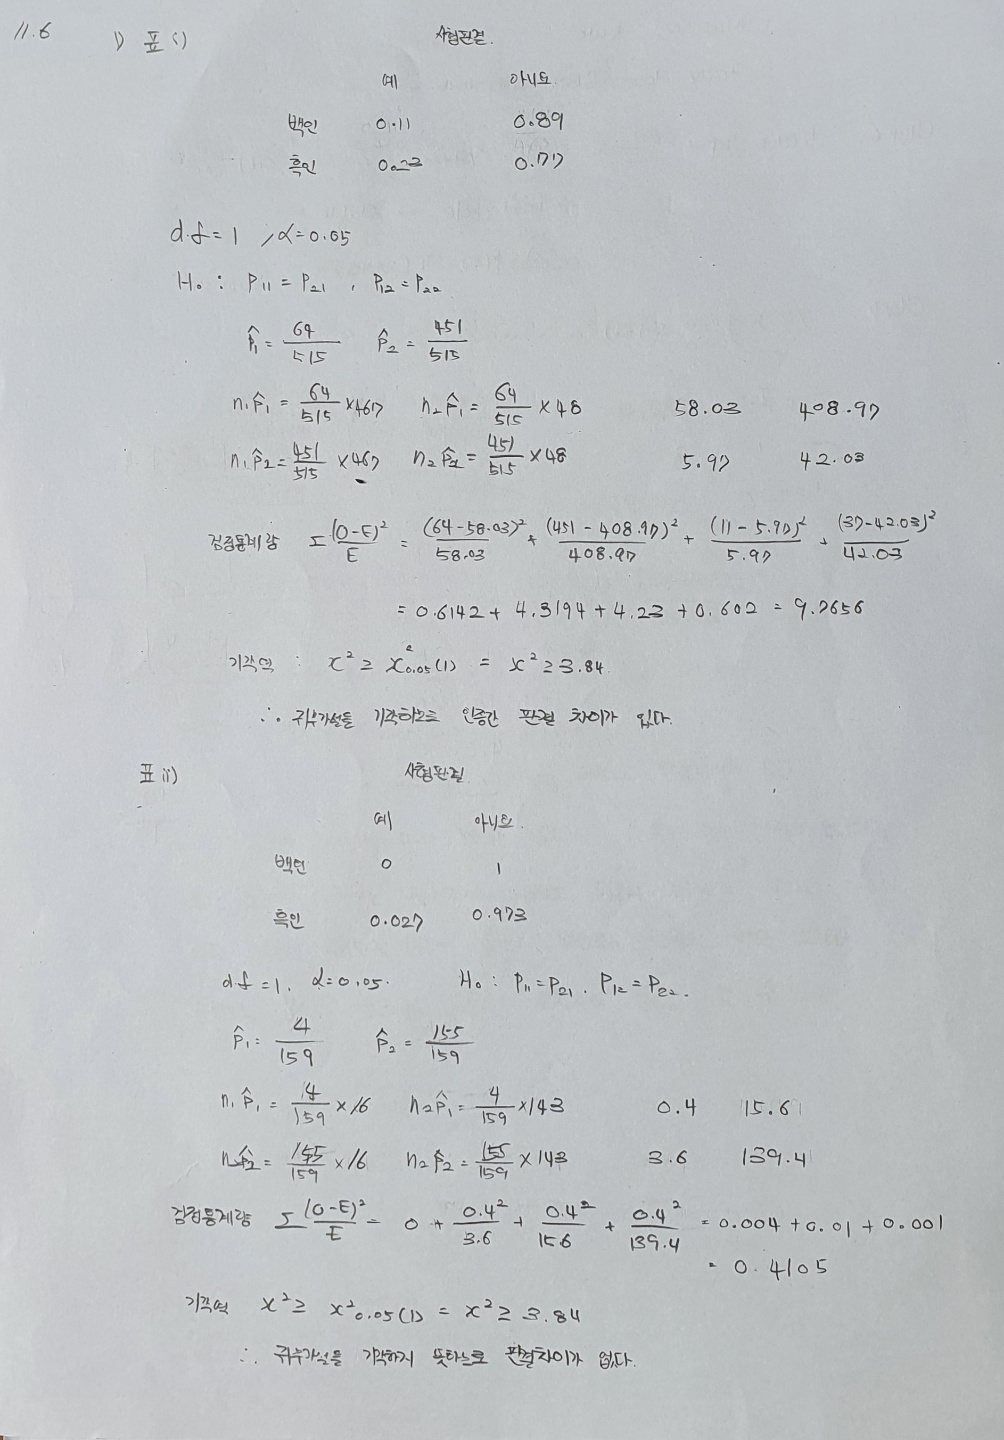 11.6 1) 표 i) 사형판결.
예 아니오
백인 0.11 0.89
흑인 0.23 0.77
d.f=1 , α=0.05
H₀ : P₁₁ = P₂₁ , P₁₂ = P₂₂
p̂₁ = 64/515 p̂₂ = 451/515
n₁p̂₁ = 64/515 ×467 n₂p̂₁ = 64/515 × 48 58.03 408.97
n₁p̂₂ = 451/515 ×467 n₂p̂₂ = 451/515 × 48 5.97 42.03
검정통계량 Σ (O-E)²/E = (64-58.03)²/58.03 + (451-408.97)²/408.97 + (11-5.97)²/5.97 + (37-42.03)²/42.03
= 0.6142 + 4.3194 + 4.23 + 0.602 = 9.7656
기각역 : x² ≥ x²₀.₀₅(1) = x² ≥ 3.84.
∴ 귀무가설을 기각하므로 인종간 판결 차이가 있다.
표 ii) 사형판결
예 아니오.
백인 0 1
흑인 0.027 0.973
d.f =1. α=0.05. H₀ : P₁₁=P₂₁ . P₁₂=P₂₂.
p̂₁ = 4/159 p̂₂ = 155/159
n₁p̂₁ = 4/159 × 16 n₂p̂₁ = 4/159 ×143 0.4 15.6
n₁p̂₂ = 155/159 × 16 n₂p̂₂ = 155/159 × 143 3.6 139.4
검정통계량 Σ (O-E)²/E = 0 + 0.4²/3.6 + 0.4²/15.6 + 0.4²/139.4 = 0.004 + 0.01 + 0.001
= 0.4105
기각역 x² ≥ x²₀.₀₅(1) = x² ≥ 3.84
∴ 귀무가설을 기각하지 못하므로 판결차이가 없다.